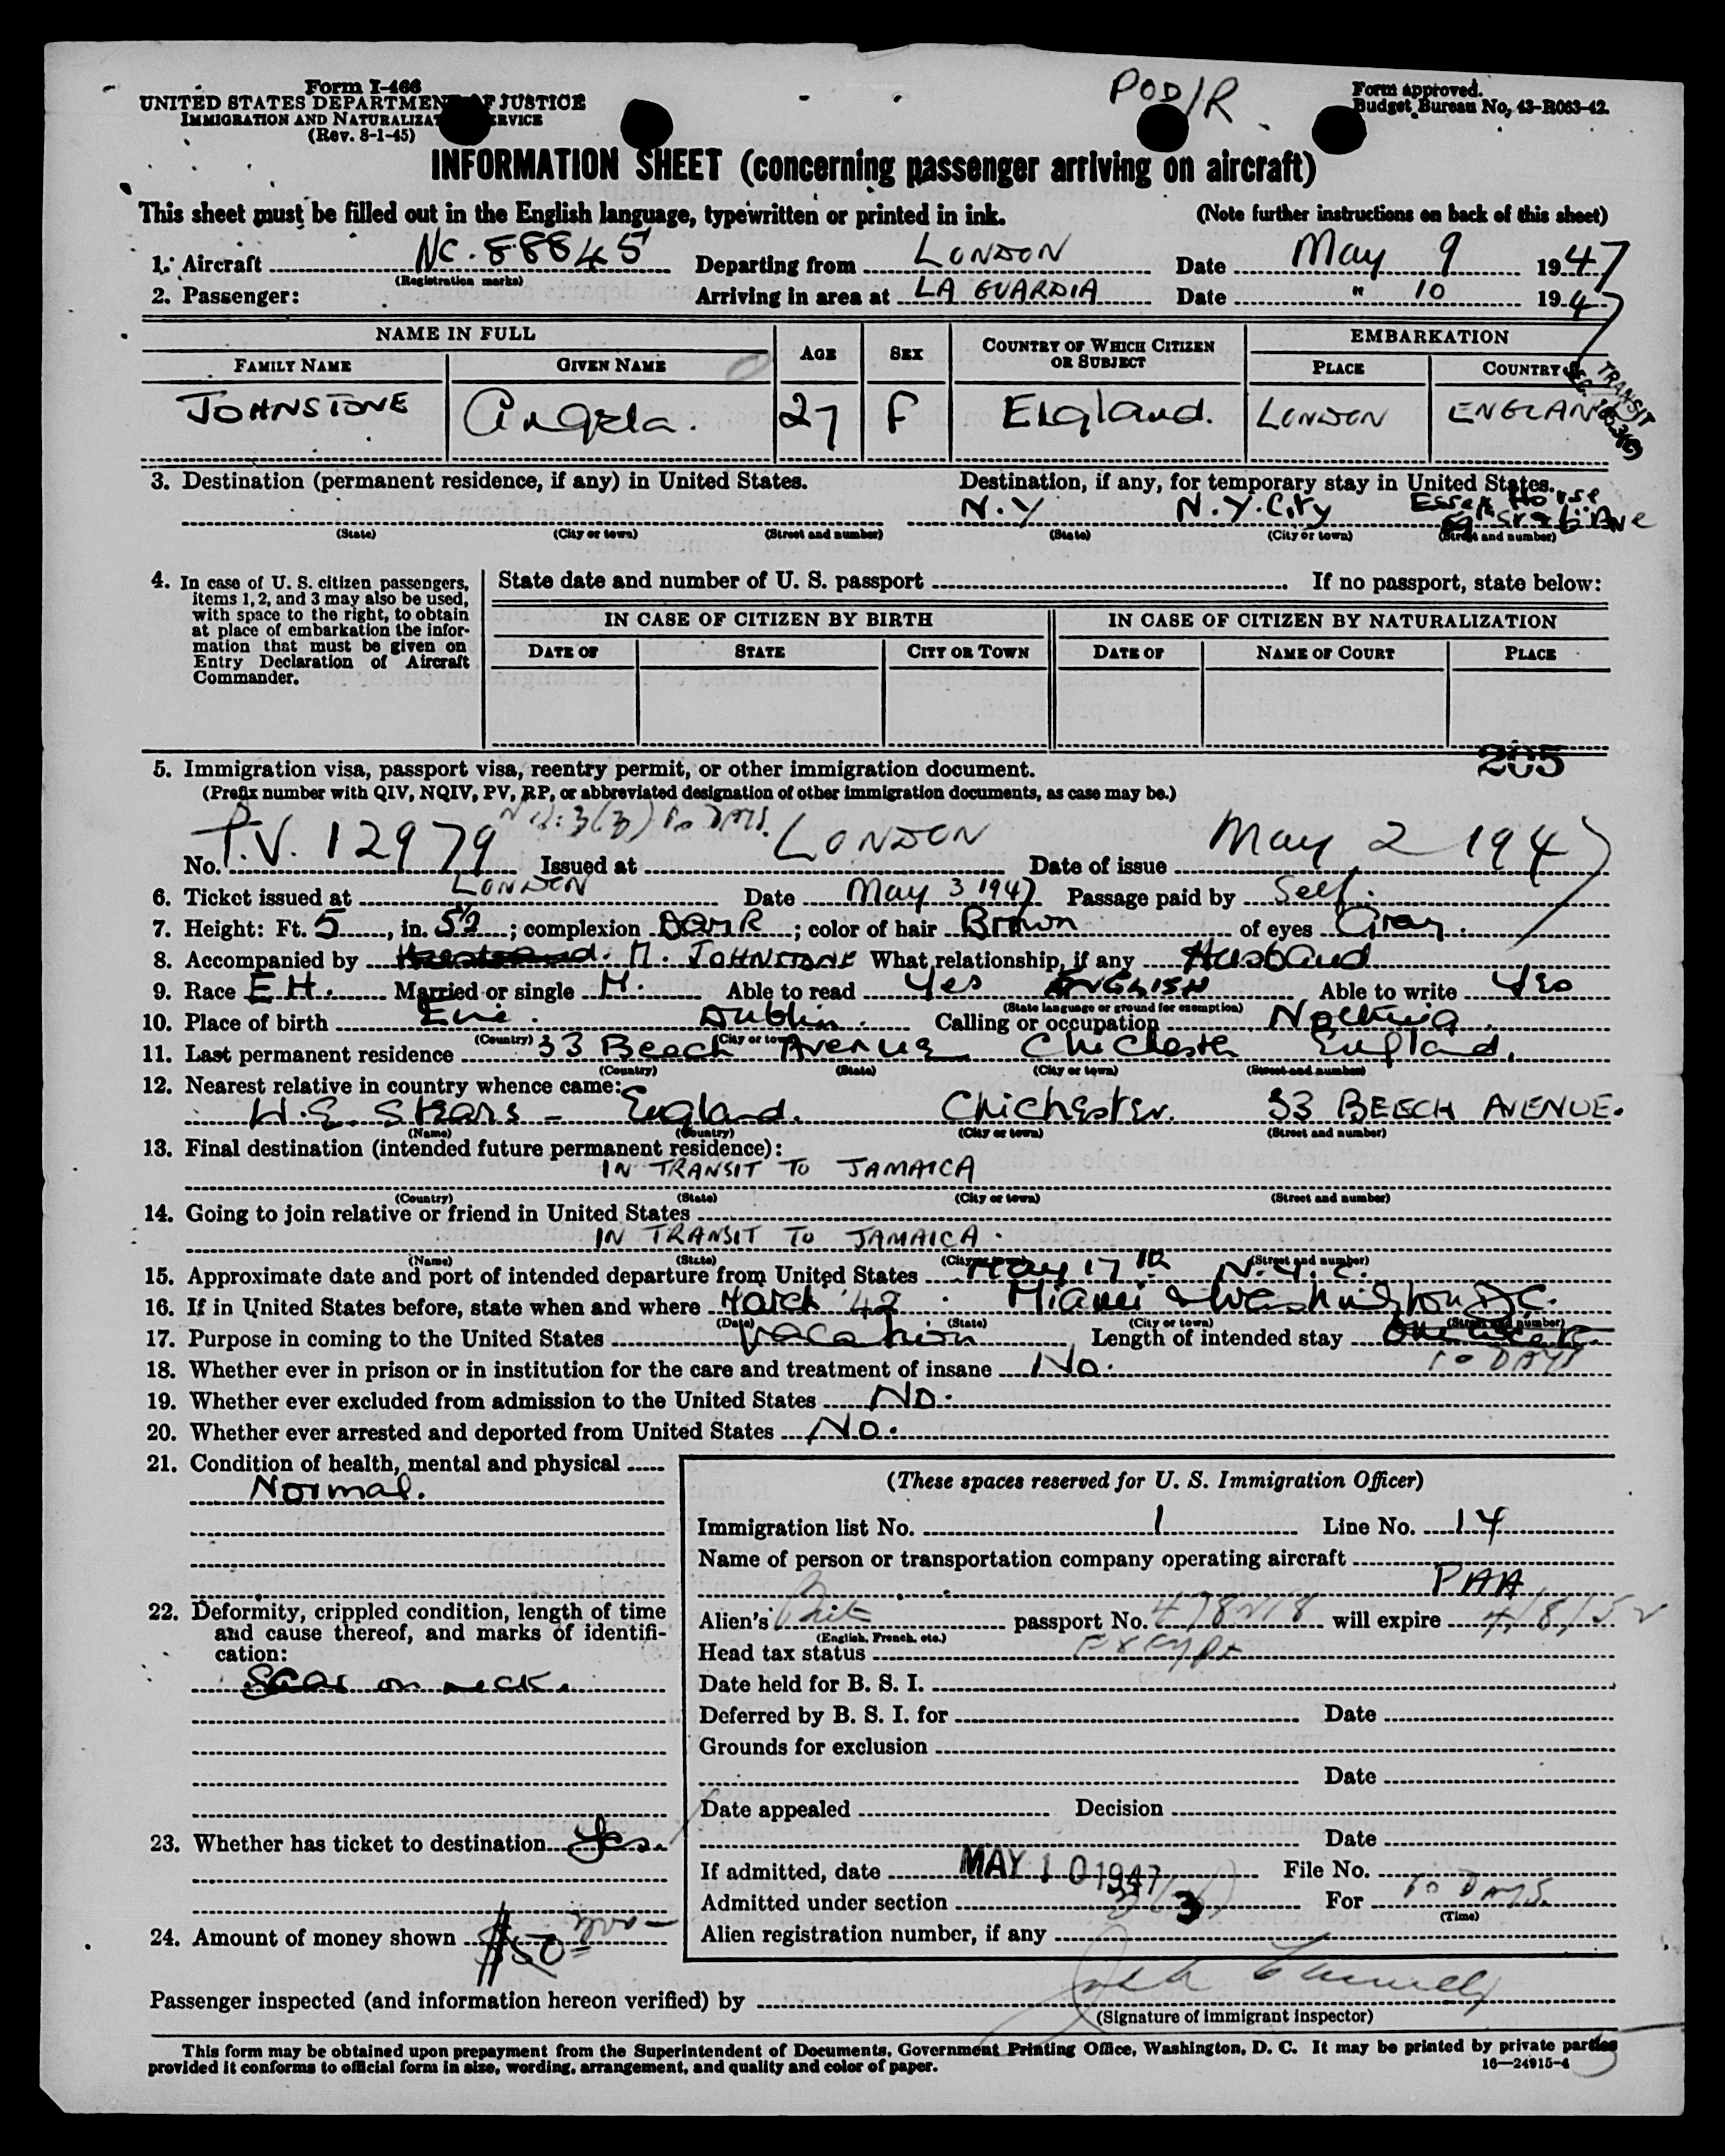 POD/R
Form I-466
UNITED STATES DEPARTMENT OF JUSTICE
IMMIGRATION AND NATURALIZATION SERVICE
(Rev. 8-1-45)
Form approved.
Budget Bureau No. 43-R063-42.
INFORMATION SHEET (concerning passenger arriving on aircraft)
This sheet must be filled out in the English language, typewritten or printed in ink. (Note further instructions on back of this sheet)
1. Aircraft NC. 88845 Departing from LONDON Date May 9 1947
(Registration marks)
2. Passenger: Arriving in area at LA GUARDIA Date " 10 1947
NAME IN FULL AGE SEX COUNTRY OF WHICH CITIZEN OR SUBJECT EMBARKATION
FAMILY NAME GIVEN NAME PLACE COUNTRY
TRANSIT
JOHNSTONE Angela. 27 F England. LONDON ENGLAND
3. Destination (permanent residence, if any) in United States. Destination, if any, for temporary stay in United States.
N.Y N.Y. City Essex House
(State) (City or town) (Street and number) (State) (City or town) (Street and number)
4. In case of U. S. citizen passengers, items 1, 2, and 3 may also be used, with space to the right, to obtain at place of embarkation the information that must be given on Entry Declaration of Aircraft Commander.
State date and number of U. S. passport If no passport, state below:
IN CASE OF CITIZEN BY BIRTH IN CASE OF CITIZEN BY NATURALIZATION
DATE OF STATE CITY OR TOWN DATE OF NAME OF COURT PLACE
205
5. Immigration visa, passport visa, reentry permit, or other immigration document.
(Prefix number with QIV, NQIV, PV, RP, or abbreviated designation of other immigration documents, as case may be.)
No. P.V. 12979 Issued at LONDON Date of issue May 2 1947
6. Ticket issued at LONDON Date May 3 1947 Passage paid by Self.
7. Height: Ft. 5, in. 5½; complexion Dark; color of hair Brown of eyes Gray.
8. Accompanied by M. JOHNSTONE What relationship, if any Husband
9. Race EH. Married or single M. Able to read Yes ENGLISH Able to write Yes
(State language or ground for exemption)
10. Place of birth Eire. Dublin. Calling or occupation Nothing.
(Country) (City or town)
11. Last permanent residence 33 Beech Avenue Chichester England.
(Country) (State) (City or town) (Street and number)
12. Nearest relative in country whence came:
H.E. Stears - England. Chichester. 33 BEECH AVENUE.
(Name) (Country) (City or town) (Street and number)
13. Final destination (intended future permanent residence):
IN TRANSIT TO JAMAICA
(Country) (State) (City or town) (Street and number)
14. Going to join relative or friend in United States
IN TRANSIT TO JAMAICA.
(Name) (State) (City or town) (Street and number)
15. Approximate date and port of intended departure from United States May 17th N.Y.C.
16. If in United States before, state when and where March '42. Miami & Washington D.C.
(Date) (State) (City or town) (Street and number)
17. Purpose in coming to the United States Vacation Length of intended stay One week
10 DAYS
18. Whether ever in prison or in institution for the care and treatment of insane No.
19. Whether ever excluded from admission to the United States No.
20. Whether ever arrested and deported from United States No.
21. Condition of health, mental and physical
Normal.
22. Deformity, crippled condition, length of time and cause thereof, and marks of identification:
Scar on neck.
23. Whether has ticket to destination Yes.
24. Amount of money shown $50
(These spaces reserved for U. S. Immigration Officer)
Immigration list No. 1 Line No. 14
Name of person or transportation company operating aircraft
PAA
Alien's Brit passport No. will expire
(English, French, etc.)
Head tax status Exempt
Date held for B. S. I.
Deferred by B. S. I. for Date
Grounds for exclusion
Date
Date appealed Decision
Date
If admitted, date MAY 10 1947 File No.
Admitted under section 3 For 10 Days
(Time)
Alien registration number, if any
Passenger inspected (and information hereon verified) by
(Signature of immigrant inspector)
This form may be obtained upon prepayment from the Superintendent of Documents, Government Printing Office, Washington, D. C. It may be printed by private parties
provided it conforms to official form in size, wording, arrangement, and quality and color of paper. 16—24915-4